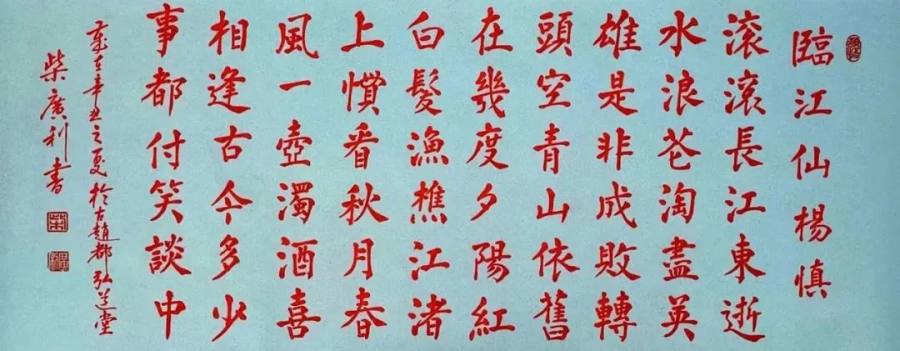 臨江仙楊慎
滚滚長江東逝
水浪花淘盡英
雄是非成敗轉
頭空青山依舊
在幾度夕陽紅
白髮漁樵江渚
上慣看秋月春
風一壺濁酒喜
相逢古今多少
事都付笑談中
歲在辛丑之夏於古趙都弘堂
柴廣利書